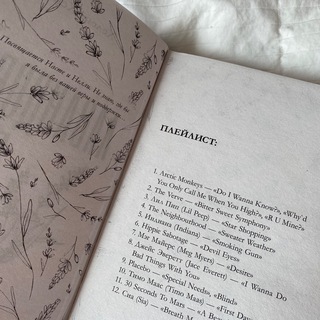 Посвящается Насте и Нелли. Не знаю, где бы
я была без вашей веры и поддержки.
ПЛЕЙЛИСТ:
1. Arctic Monkeys — «Do I Wanna Know?», «Why'd
You Only Call Me When You High?», «R U Mine?»
2. The Verve — «Bitter Sweet Symphony»
3. Лил Пип (Lil Peep) — «Star Shopping»
4. The Neighbourhood — «Sweater Weather»
5. (Indiana) — «Smoking Gun»
6. Hippie Sabotage — «Devil Eyes»
7. Мэг Майерс (Meg Myers) — «Desire»
8. Джейс Эверетт (Jace Everett) — «I Wanna Do
Bad Things With You»
9. Placebo — «Special Needs», «Blind»
10. Тимо Маас (Timo Maas) — «First Day»
11. 30 Seconds To Mars — «A
12. Сиа (Sia) — «Breath M